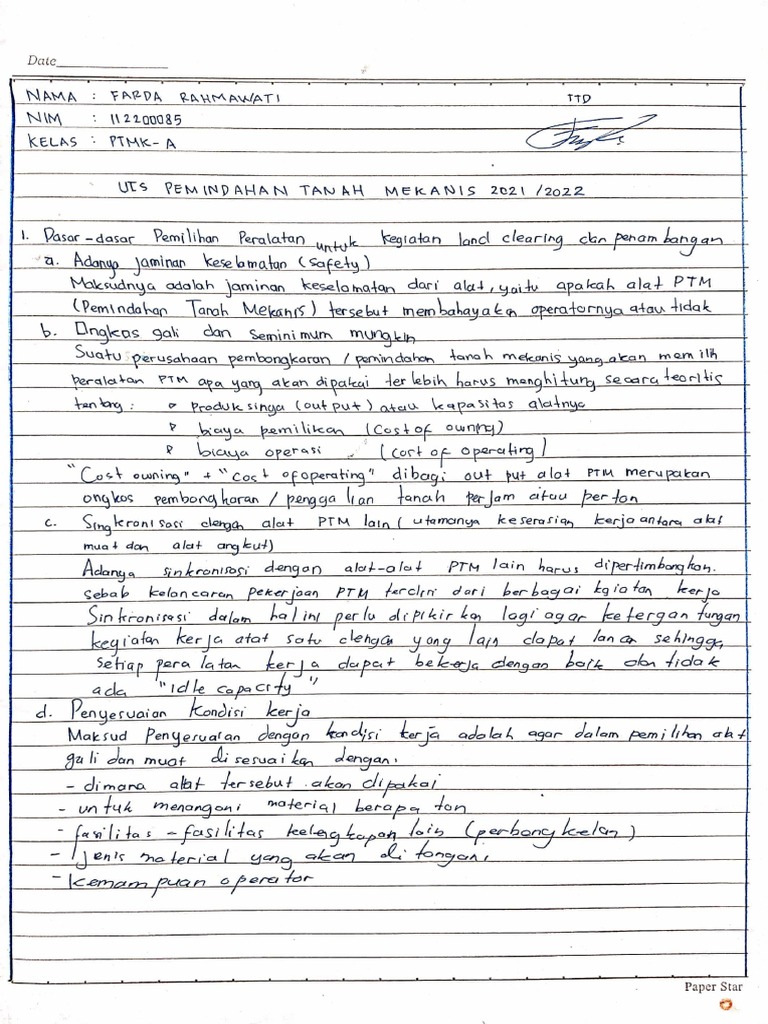 Date
NAMA : FARDA RAHMAWATI TTD
NIM : 112200085
KELAS : PTMK-A
UTS PEMINDAHAN TANAH MEKANIS 2021/2022
1. Dasar-dasar Pemilihan Peralatan untuk kegiatan land clearing dan penambangan
a. Adanya jaminan keselamatan (safety)
Maksudnya adalah jaminan keselamatan dari alat, yaitu apakah alat PTM
(Pemindahan Tanah Mekanis) tersebut membahayakan operatornya atau tidak
b. Ongkos gali dan seminimum mungkin
Suatu perusahaan pembongkaran / pemindahan tanah mekanis yang akan memilih
peralatan PTM apa yang akan dipakai terlebih harus menghitung secara teoritis
tentang : • produksinya (output) atau kapasitas alatnya
• biaya pemilikan (cost of owning)
• biaya operasi (cort of operating)
"Cost owning" + "Cost of operating" dibagi out put alat PTM merupakan
ongkos pembongkaran / penggalian tanah perjam atau perton
c. Singkronisasi dengan alat PTM lain (utamanya keserasian kerja antara alat
muat dan alat angkut)
Adanya sinkronisasi dengan alat-alat PTM lain harus dipertimbangkan.
sebab kelancaran pekerjaan PTM terdiri dari berbagai kgiatan kerja
Sinkronisasi dalam hal ini perlu dipikirkan lagi agar ketergantungan
kegiatan kerja atat satu dengan yang lain dapat lancar sehingga
setiap peralatan kerja dapat bekerja dengan baik dan tidak
ada "idle capacity"
d. Penyesuaian kondisi kerja
Maksud Penyesuaian dengan kondisi kerja adalah agar dalam pemilihan alat
gali dan muat disesuaikan dengan.
- dimana alat tersebut akan dipakai
- untuk menangani material berapa ton
- fasilitas - fasilitas kelengkapan lain (perbengkelan)
- jenis material yang akan ditangani
- kemampuan operator
Paper Star